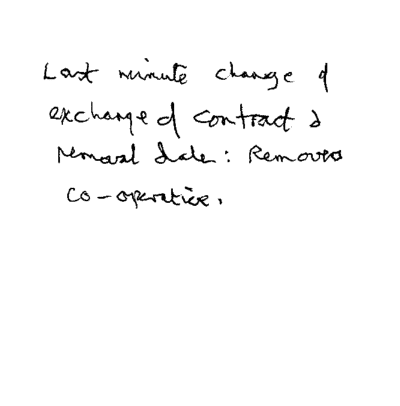 Last minute change of
exchange of contract &
removal date: Removers
co-operative.